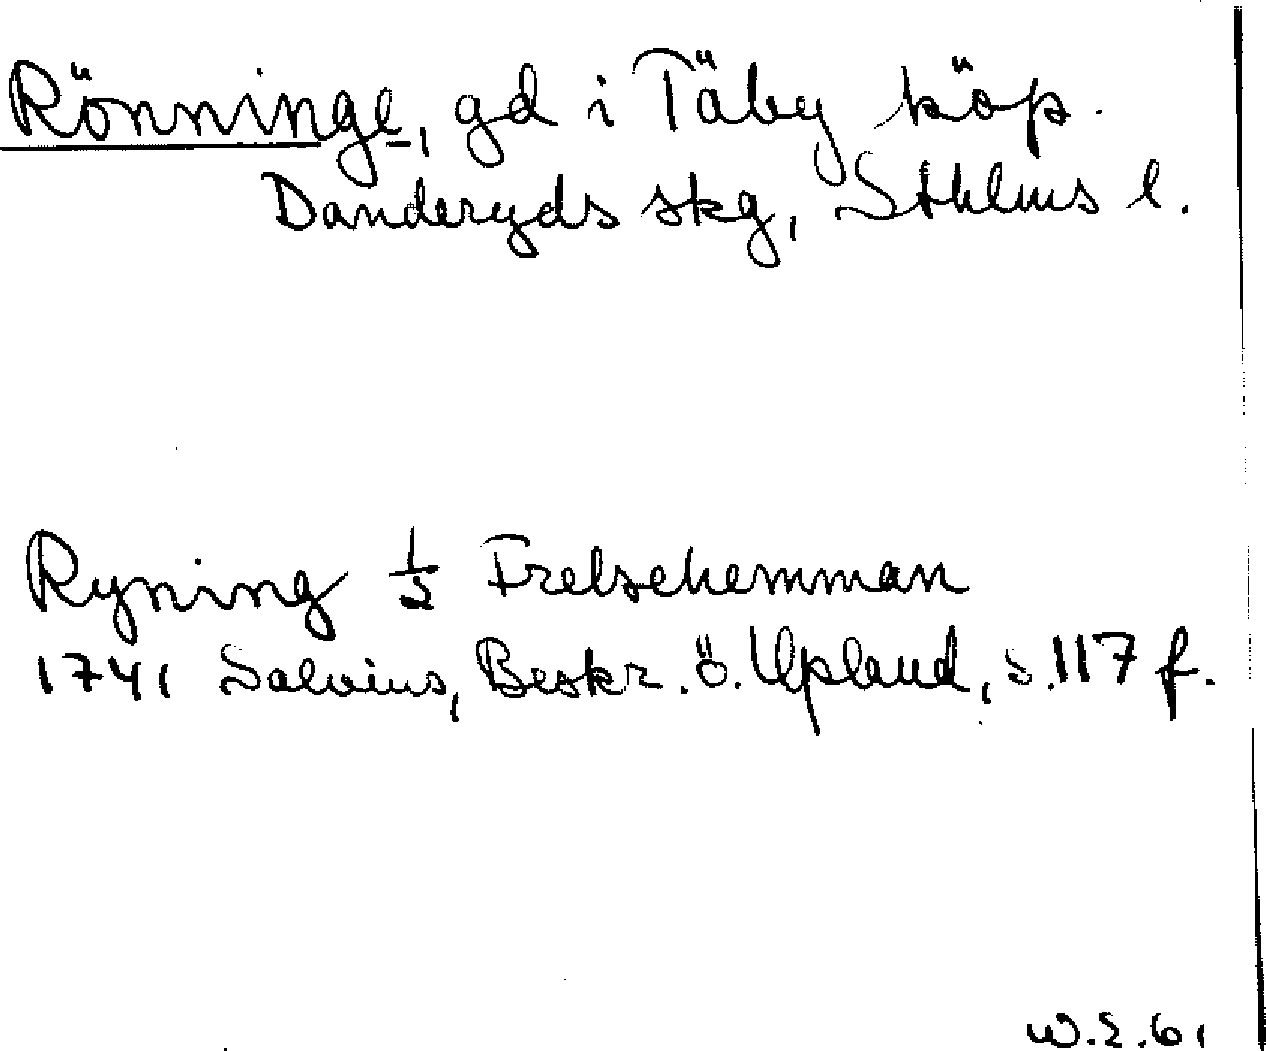 Rönninge, gd i Täby köp.
Danderyds skg, Sthlms l.
Ryning 1/2 Frelsehemman
1741 Salvius, Beskr. ö. Upland, s. 117 f.
W.E.61